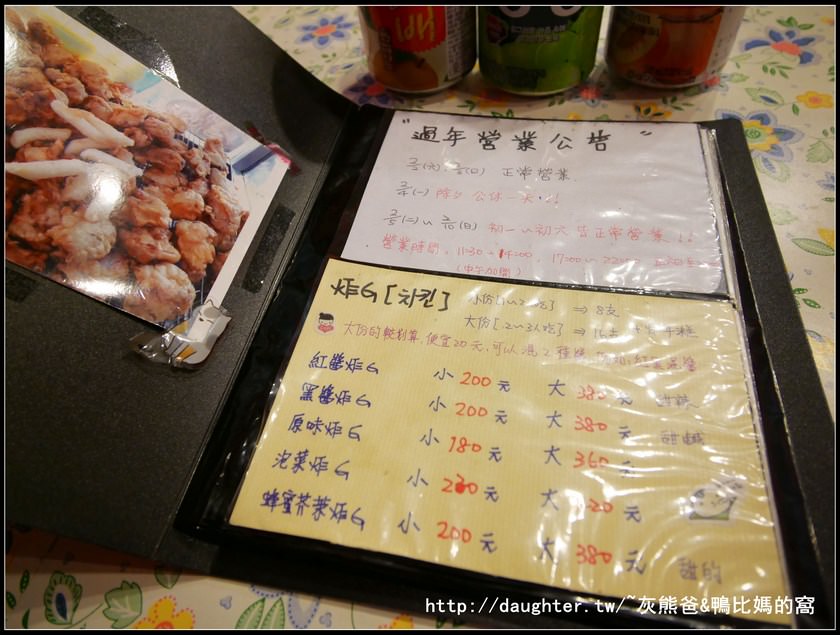 배
"過年營業公告"
2/3(六)、2/3(日) 正常營業.
2/4(一) 除夕 公休一天!!
2/5(二)~2/10(日) 初一~初六 皆正常營業!!
營業時間、11:30~14:00、17:00~
(中午加開)
炸G[치킨] 小份[1~2人吃] ⇒ 8支
大份[2~3人吃] ⇒ 16支 年糕
大份的較划算,便宜20元,可以選2種醬
紅醬炸G 小 200元 大 380元 甜辣
黑醬炸G 小 200元 大 380元 甜鹹
原味炸G 小 180元 大 360元
泡菜炸G 小 230元 大 420元
蜂蜜芥茉炸G 小 200元 大 380元 甜的
http://daughter.tw/~灰熊爸&鴨比媽的窩